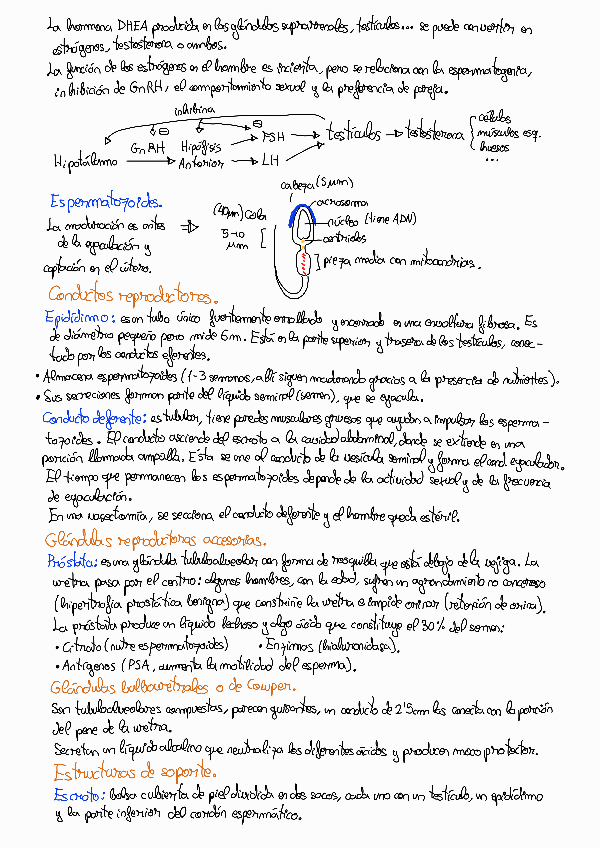 La hormona DHEA producida en las glándulas suprarrenales, testículos... se puede convertir en
estrógenos, testosterona o ambos.
La función de los estrógenos en el hombre es incierta, pero se relaciona con la espermatogenia,
inhibición de GnRH, el comportamiento sexual y la preferencia de pareja.
inhibina
Hipotálamo
GnRH
⊖
Hipófisis
Anterior
⊖
FSH
LH
testículos
testosterona
células
músculos esq.
huesos
...
Espermatozoides.
La maduración es antes
de la eyaculación y
captación en el útero.
(40µm) Cola
5-10
µm
cabeza (5µm)
acrosoma
núcleo (tiene ADN)
centriolos
pieza media con mitocondrias.
Conductos reproductores.
Epidídimo: es un tubo único fuertemente enrollado y encerrado en una envoltura fibrosa. Es
de diámetro pequeño pero mide 6m. Está en la parte superior y trasera de los testículos, conec-
tado por los conductos eferentes.
• Almacena espermatozoides (1-3 semanas, allí siguen madurando gracias a la presencia de nutrientes).
• Sus secreciones forman parte del líquido seminal (semen), que se eyacula.
Conducto deferente: es tubular, tiene paredes musculares gruesas que ayudan a impulsar los esperma-
tozoides. El conducto asciende del escroto a la cavidad abdominal, donde se extiende en una
porción llamada ampolla. Esta se une al conducto de la vesícula seminal y forma el cond. eyaculador.
El tiempo que permanecen los espermatozoides depende de la actividad sexual y de la frecuencia
de eyaculación.
En una vasectomía, se secciona el conducto deferente y el hombre queda estéril.
Glándulas reproductoras accesorias.
Próstata: es una glándula tubuloalveolar con forma de rosquilla que está debajo de la vejiga. La
uretra pasa por el centro: algunos hombres, con la edad, sufren un agrandamiento no canceroso
(hipertrofia prostática benigna) que constriñe la uretra e impide orinar (retención de orina).
La próstata produce un líquido lechoso y algo ácido que constituye el 30% del semen:
• Citrato (nutre espermatozoides) • Enzimas (hialuronidasa).
• Antígenos (PSA, aumenta la motilidad del esperma).
Glándulas bulbouretrales o de Cowper.
Son tubuloalveolares compuestas, parecen guisantes, un conducto de 2'5cm las conecta con la porción
del pene de la uretra.
Secretan un líquido alcalino que neutraliza los diferentes ácidos y producen moco protector.
Estructuras de soporte.
Escroto: bolsa cubierta de piel dividida en dos sacos, cada uno con un testículo, un epidídimo
y la parte inferior del cordón espermático.